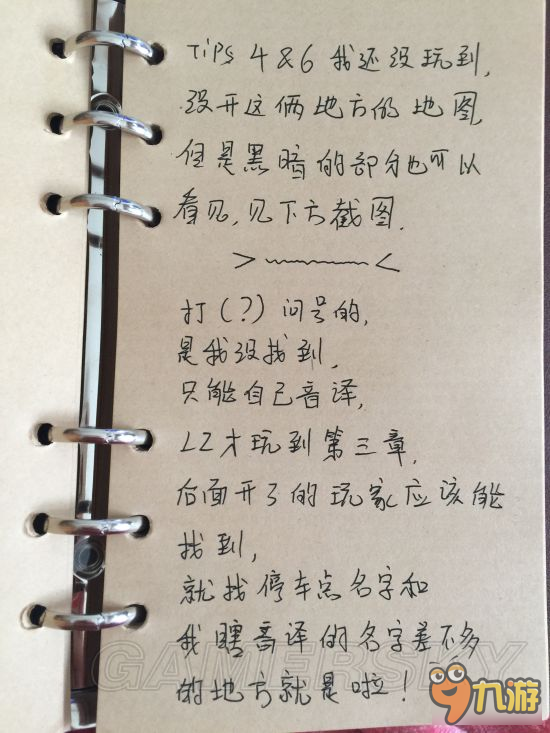 TiPS 4&6 我还没玩到,
没开这俩地方的地图
但是黑暗的部分也可以
看见,见下方截图.
>﹏﹏﹏<
打(?)问号的,
是我没找到,
只能自己音译,
LZ才玩到第三章,
后面开了的玩家应该能
找到,
就找停车点名字和
我瞎音译的名字差不多
的地方就是啦!
GAMERSKY
九游